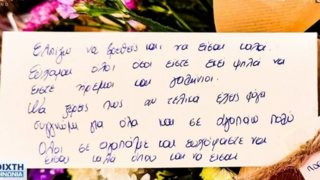 Ελπίζω να βρεθείς και να είσαι καλά.
Εύχομαι όλοι όσοι είστε εκεί ψηλά να
είστε ήρεμοι και γαλήνιοι.
Να ξέρεις πως αν τελικά έχεις φύγει
συγγνώμη για όλα και σε αγαπάω πολύ
Όλοι σε αγαπάμε και ευχόμαστε να
είσαι καλά όπου και να είσαι
ΟΙΧΤΗ
ΙΝΩΝΙΑ